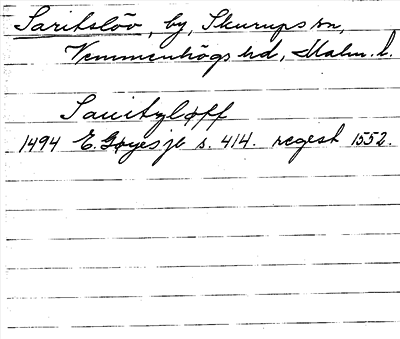 Saritslöv, by, Skurups sn,
Vemmenhögs hd, Malm. l.
Sauitzløff
1494 E. Gøyes jb s. 414. regest 1552.